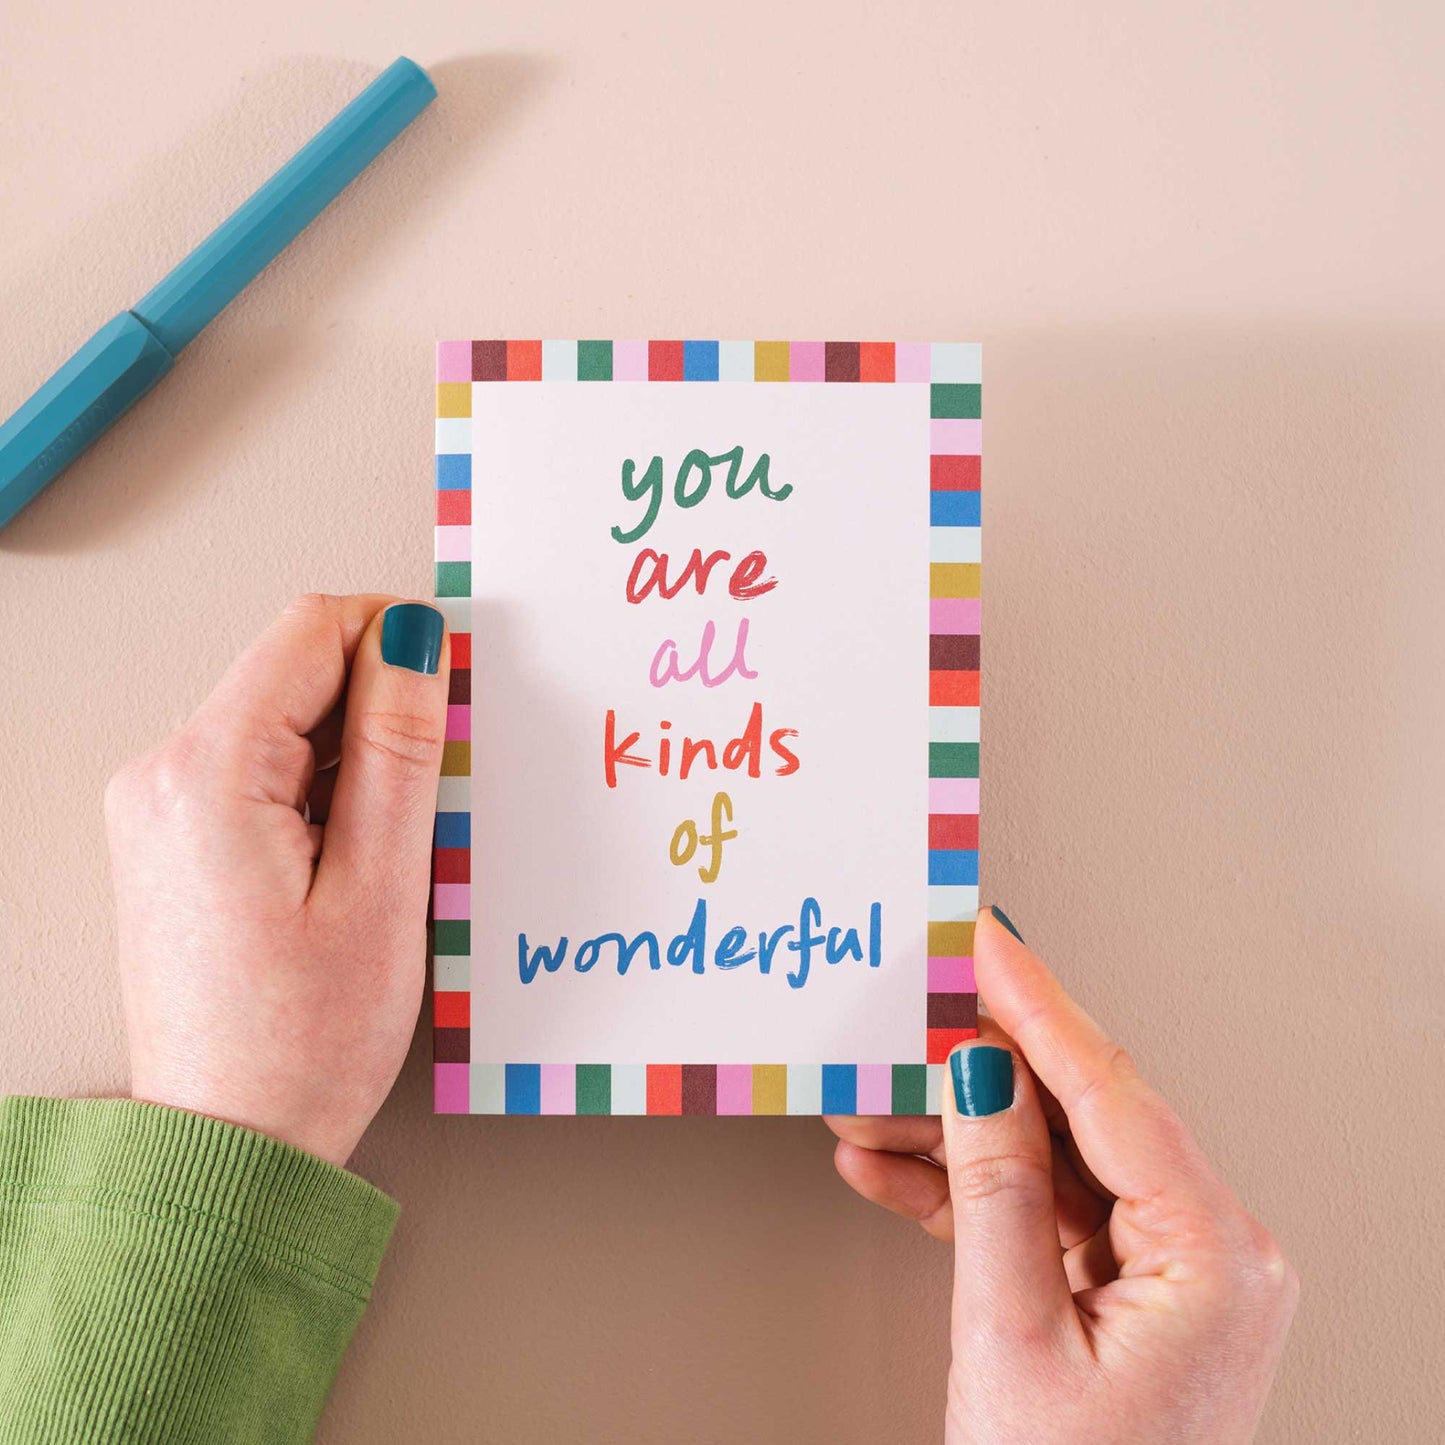 you
are
all
kinds
of
wonderful